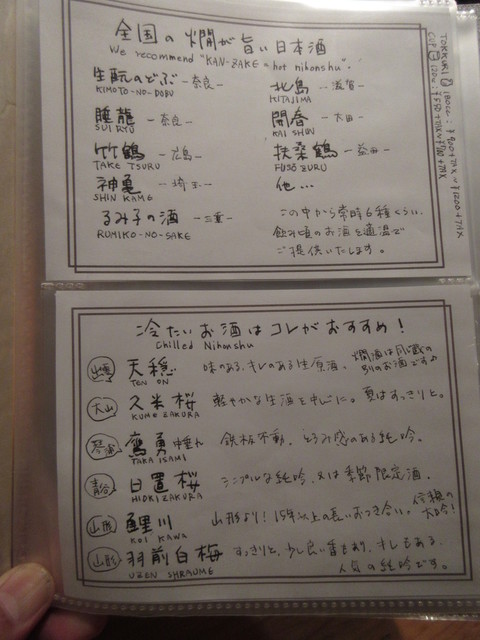 全国の燗が旨い日本酒
We recommend "KAN-ZAKE = hot nihonshu".
生酛のどぶ -奈良-
KIMOTO-NO-DOBU
睡龍 -奈良-
SUIRYU
竹鶴 -広島-
TAKE TSURU
神亀 -埼玉-
SHIN KAME
るみ子の酒 -三重-
RUMIKO-NO-SAKE
北島 -滋賀-
KITAJIMA
開春 -太田-
KAI SHUN
扶桑鶴 -益田-
FUSO ZURU
他...
この中から常時6種くらい、
飲み頃のお酒を適温で
ご提供いたします。
TOKKURI 180cc:
CUP 120cc:
冷たいお酒はコレがおすすめ!
Chilled Nihonshu
出雲 天穏 味のある、キレのある生原酒。
TEN ON
別のお酒です
大山 久米桜 軽やかな生酒を中心に。夏はすっきりと。
KUME ZAKURA
琴浦 鷹勇 中垂れ 鉄板不動、とろみ感のある純吟。
TAKA ISAMI
青谷 日置桜 シンプルな純吟、又は季節限定酒。
HIOKI ZAKURA
山形 鯉川 山形より!15年以上の長いお付き合い。
KOI KAWA
山形 羽前白梅 すっきりと、少し良い香もあり、キレもある、
UZEN SHRAUME 人気の純吟です。